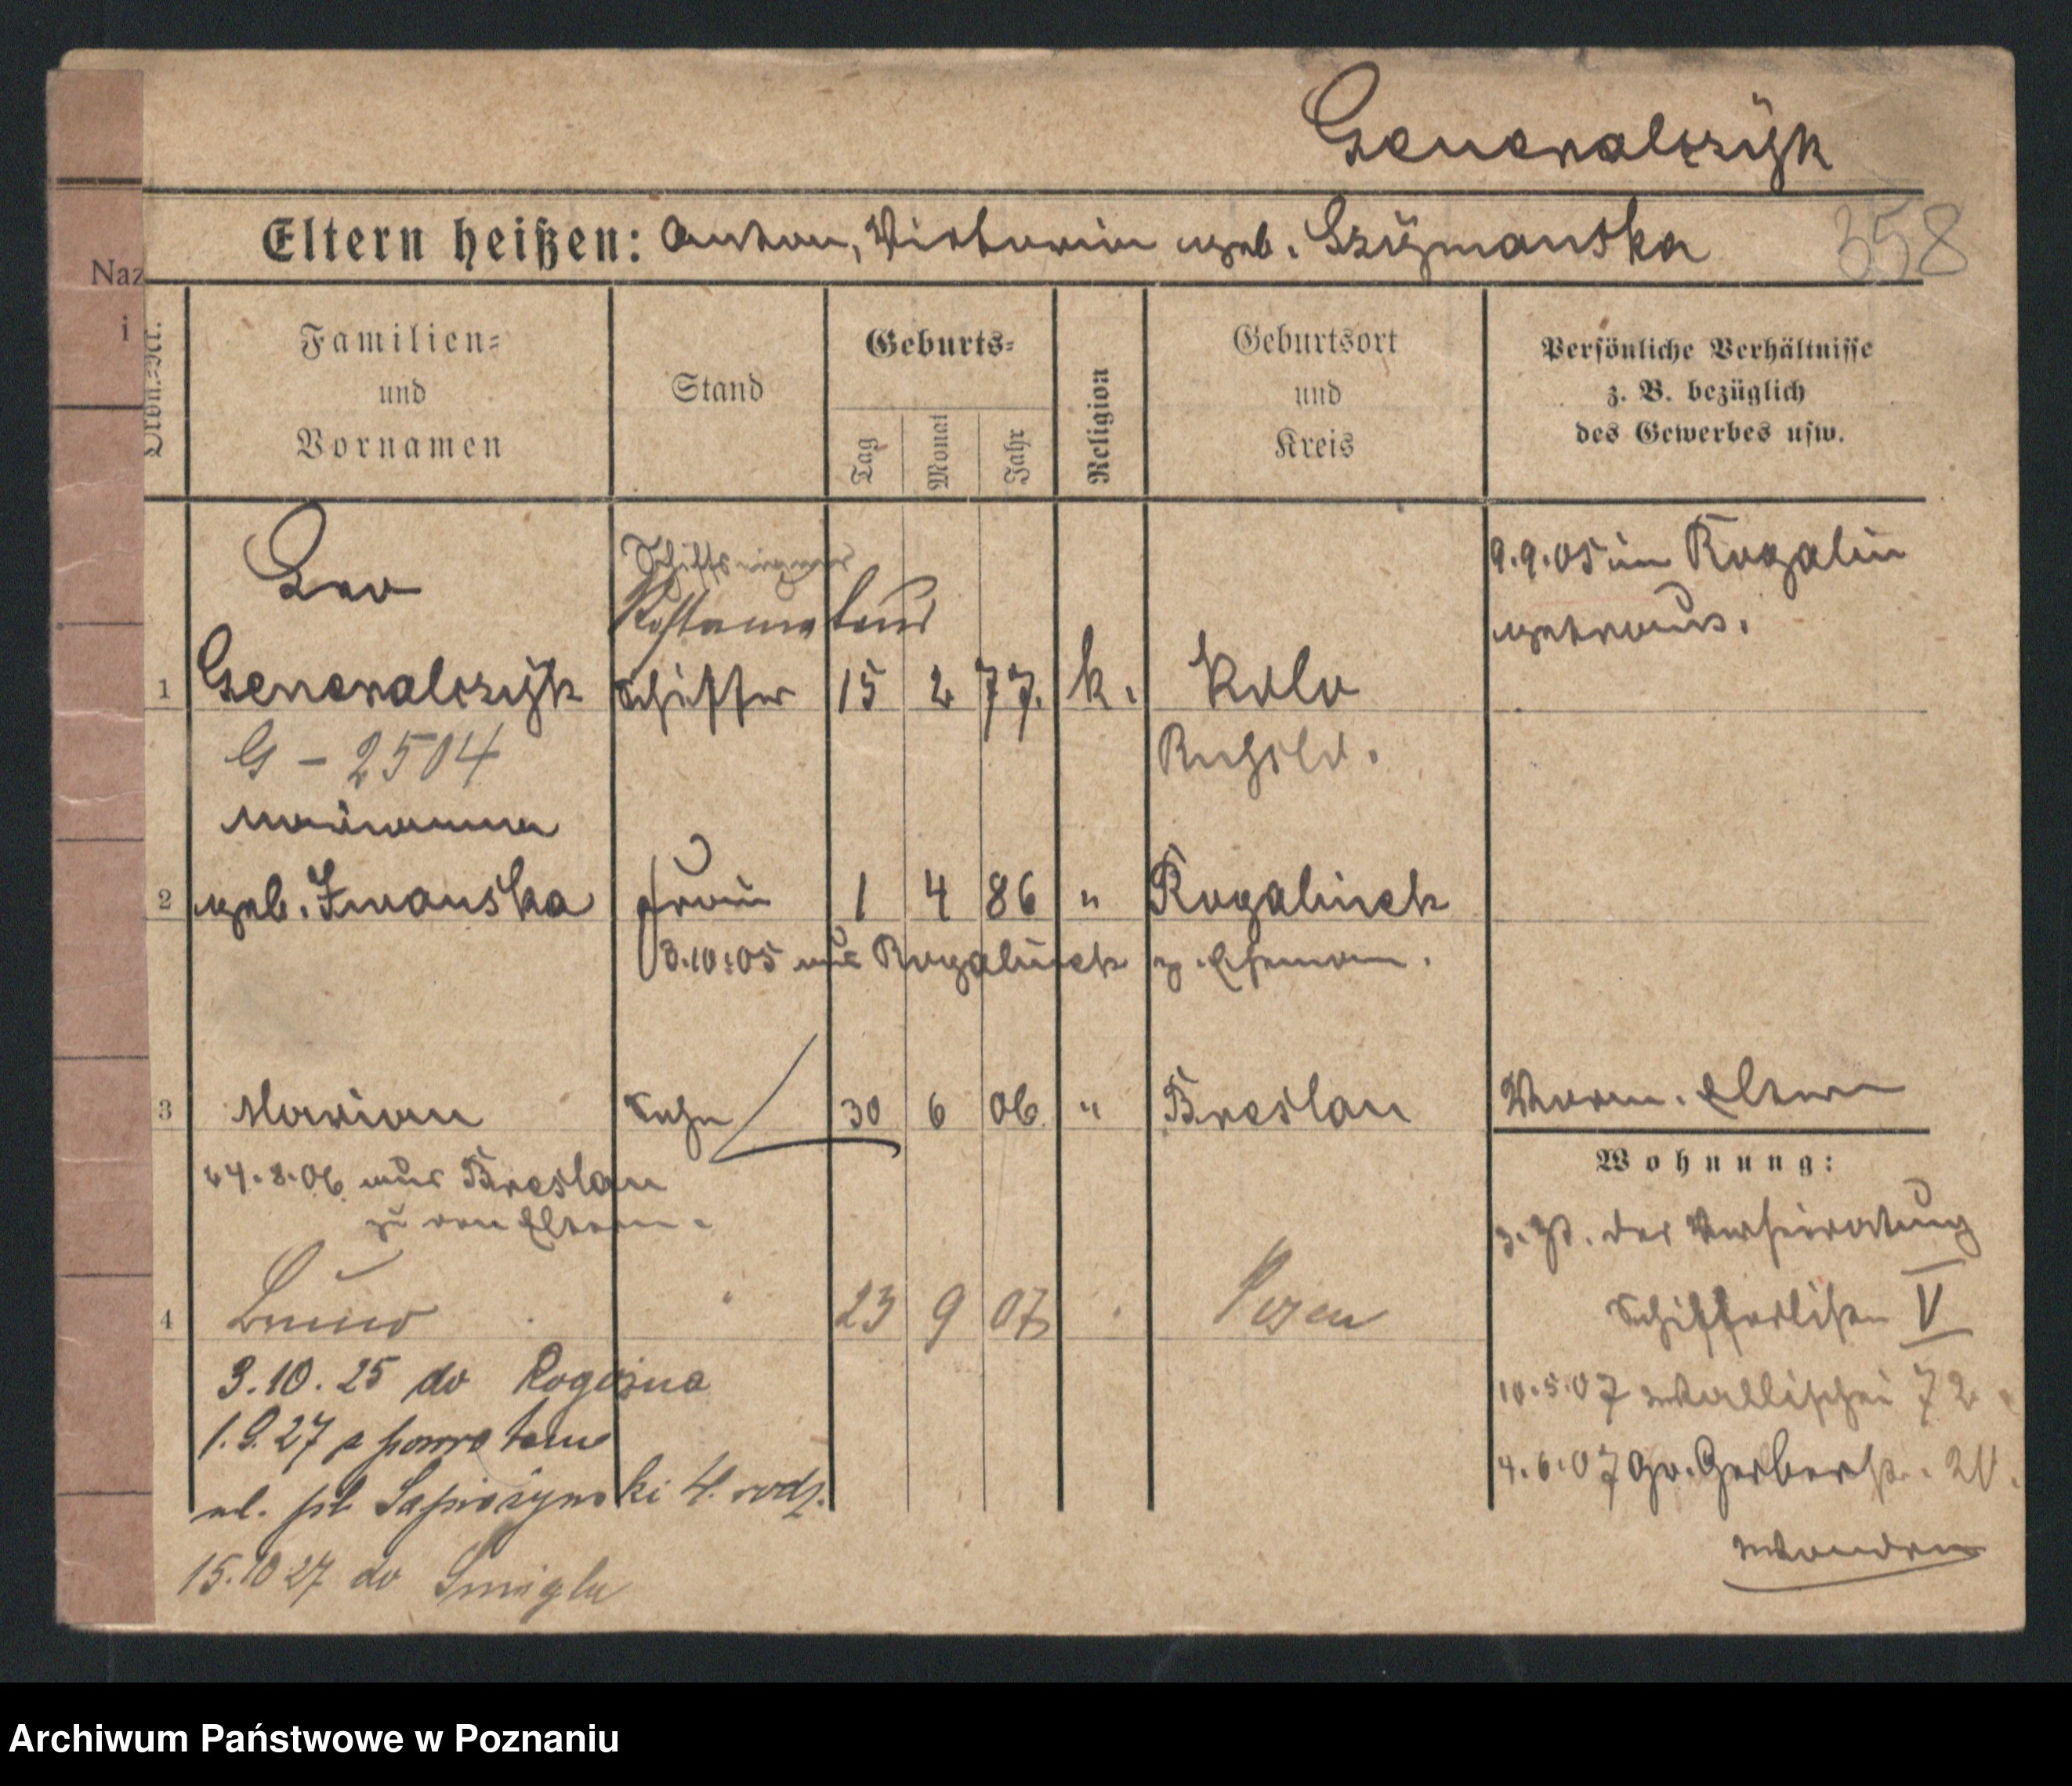 Generalczyk
Eltern heißen: Anton, Victoria geb. Szymanska
358
Naz
i
Ordn.-Nr.
Familien-
und
Vornamen
Stand
Geburts-
Tag
Monat
Jahr
Religion
Geburtsort
und
Kreis
Persönliche Verhältnisse
z. B. bezüglich
des Gewerbes usw.
Leo
Schiffseigner
9.9.05 in Rogalin
getraut.
1 Generalczyk Schiffer 15 2 77. k. Kolo
G - 2504
Rußld.
Marianna
2 geb. Iwanska Frau 1 4 86 " Rogalinek
3.10.05 aus Rogalinek z. Ehemann.
3 Marian Sohn 30 6 06 " Breslau
Eltern
24.8.06 aus Breslau
zu den Eltern.
Wohnung:
z. Zt. der Verheiratung
Schifferlisten V
4 Bruno " 23 9 07 Posen
3.10.25 do Rogoźna
10.5.07 Wallischei 72
1.9.27 z powrotem
4.6.07 Gr. Gerberstr. 20.
ul. pl. Sapieżynski 4. rodz.
wenden
15.10 27 do Śmigla
Archiwum Państwowe w Poznaniu